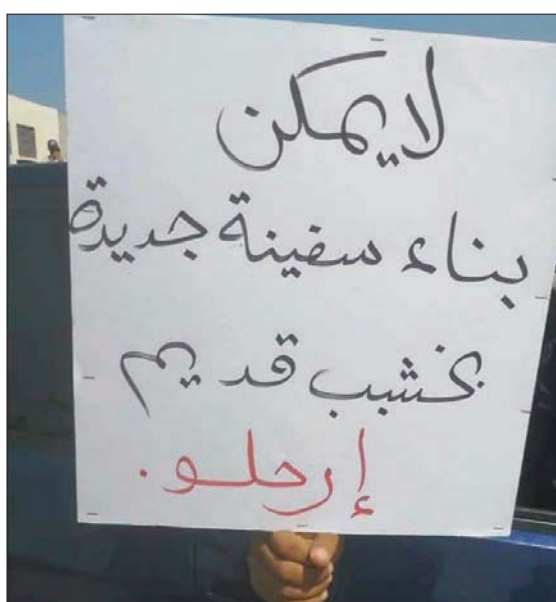 لا يمكن
بناء سفينة جديدة
بخشب قديم
إرحلو.